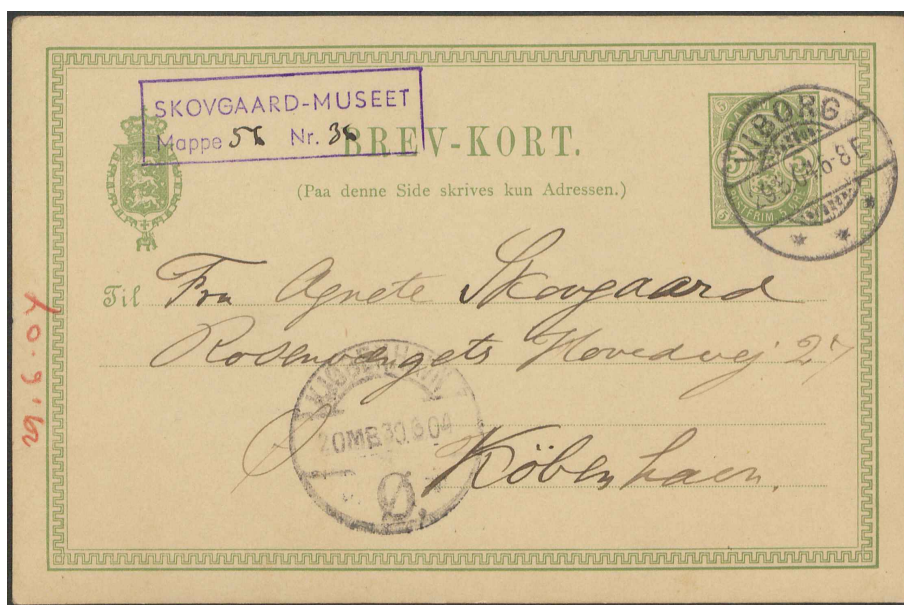 SKOVGAARD-MUSEET
Mappe 56 Nr. 36
BREV-KORT.
(Paa denne Side skrives kun Adressen.)
VIBORG
6-8 E
Til Fru Agnete Skovgaard
Rosenvængets Hovedvej 27
KJØBENHAVN
2OMB 30 04
Ø.
København.